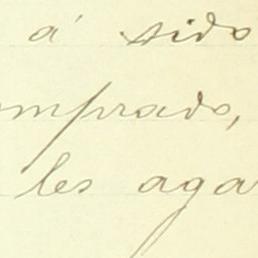 á sido
omprado,
les aga